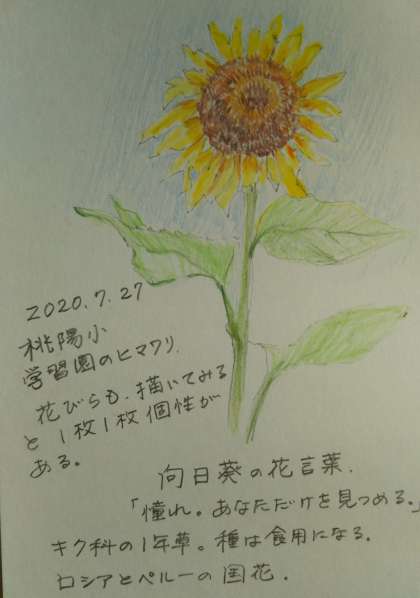 2020.7.27
桃陽小
学習園のヒマワリ.
花びらも.描いてみる
と1枚1枚個性が
ある。
向日葵の花言葉.
「憧れ。あなただけを見つめる。」
キク科の1年草。種は食用になる.
ロシアとペルーの国花.